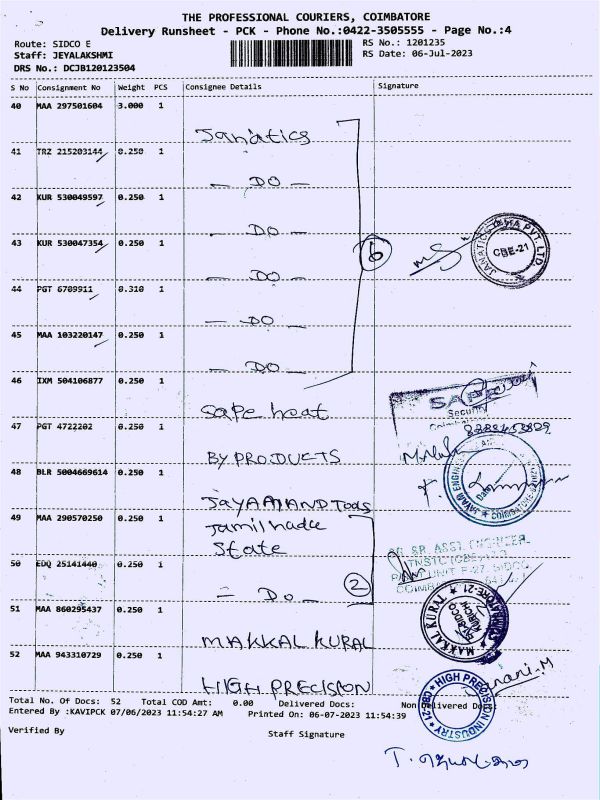 THE PROFESSIONAL COURIERS, COIMBATORE
Delivery Runsheet - PCK - Phone No.:0422-3505555 - Page No.:4
Route: SIDCO E
RS No.: 1201235
Staff: JEYALAKSHMI
RS Date: 06-Jul-2023
DRS No.: DCJB120123504
S No Consignment No Weight PCS Consignee Details Signature
40 MAA 297501604 3.000 1
Janatics
41 TRZ 215203144 0.250 1
— DO —
42 KUR 530049597 0.250 1
— DO —
43 KUR 530047354 0.250 1
— DO —
6
JANATICS INDIA PVT. LTD
CBE-21
44 PGT 6709911 0.310 1
— DO —
45 MAA 103220147 0.250 1
— DO —
46 IXM 504106877 0.250 1
Sape heat
Security
47 PGT 4722202 0.250 1
BY PRODUCTS
48 BLR 5004669614 0.250 1
JAYAANAND Tools
49 MAA 290570250 0.250 1
Tamilnadu
State
50 EDQ 25141440 0.250 1
= Do —
2
51 MAA 860295437 0.250 1
MAKKAL KURAL
MAKKAL KURAL
52 MAA 943310729 0.250 1
HIGH PRECISION
HIGH PRECISION INDUSTRY
CBE-21
Total No. Of Docs: 52 Total COD Amt: 0.00 Delivered Docs: Non Delivered Docs:
Entered By :KAVIPCK 07/06/2023 11:54:27 AM Printed On: 06-07-2023 11:54:39
Verified By Staff Signature